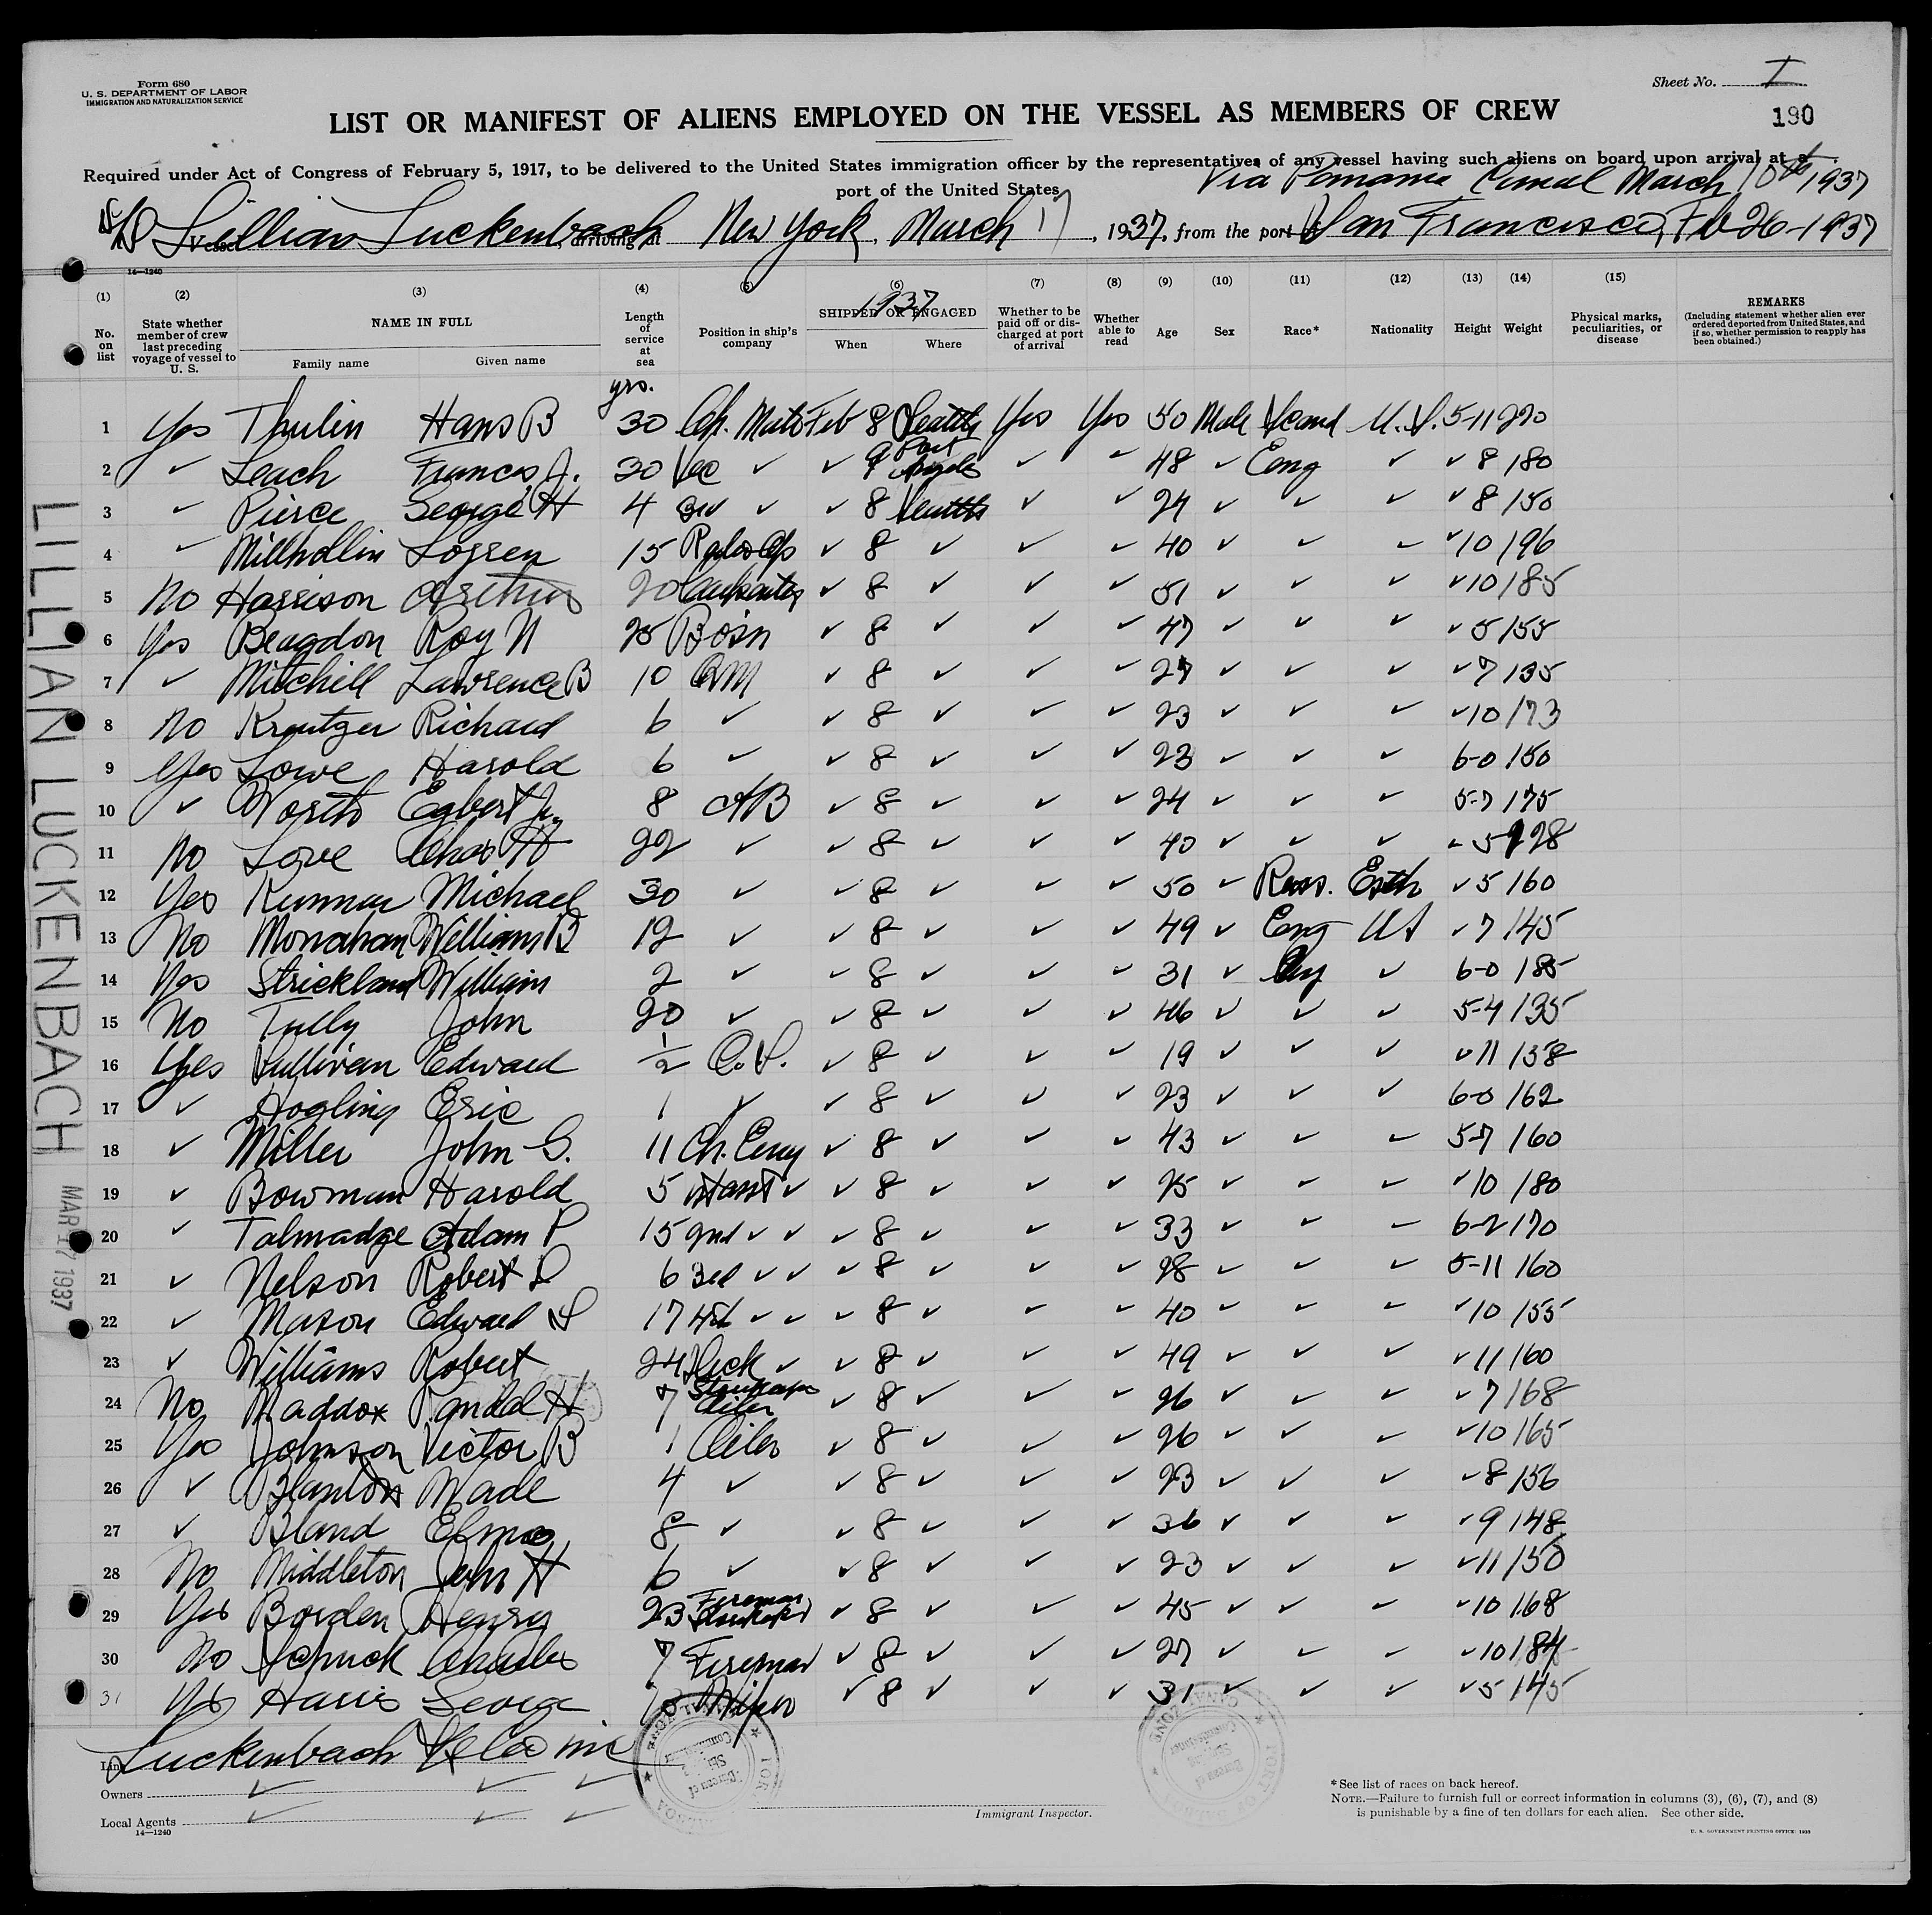 Form 680
U. S. DEPARTMENT OF LABOR
IMMIGRATION AND NATURALIZATION SERVICE
Sheet No. I
190
LIST OR MANIFEST OF ALIENS EMPLOYED ON THE VESSEL AS MEMBERS OF CREW
Required under Act of Congress of February 5, 1917, to be delivered to the United States immigration officer by the representatives of any vessel having such aliens on board upon arrival at a
port of the United States
Via Panama Canal March 10th 1937
SS Vessel Lillian Luckenbach, arriving at New York, March 17, 1937, from the port San Francisco, Feb 26-1937
14—1240
(1) (2) (3) (4) (5) (6) (7) (8) (9) (10) (11) (12) (13) (14) (15)
No. on list
State whether member of crew last preceding voyage of vessel to U. S.
NAME IN FULL
Family name Given name
Length of service at sea
yrs.
Position in ship's company
1937
SHIPPED OR ENGAGED
When Where
Whether to be paid off or discharged at port of arrival
Whether able to read
Age Sex Race* Nationality Height Weight
Physical marks, peculiarities, or disease
REMARKS
(Including statement whether alien ever ordered deported from United States, and if so, whether permission to reapply has been obtained.)
1 Yes Thulin Hans B 30 Ch. Mate Feb 8 Seattle Yes Yes 50 Male Scand U.S. 5-11 220
2 ✓ Leach Francis J. 30 Sec ✓ ✓ 9 Port Angeles ✓ ✓ 48 ✓ Eng ✓ ✓ 8 180
3 ✓ Pierce George H 4 3rd ✓ ✓ 8 Seattle ✓ ✓ 24 ✓ ✓ ✓ ✓ 8 150
4 ✓ Millhollin Lorren 15 Radio Op ✓ 8 ✓ ✓ ✓ 40 ✓ ✓ ✓ ✓ 10 196
5 No Harrison Arthur 20 Carpenter ✓ 8 ✓ ✓ ✓ 51 ✓ ✓ ✓ ✓ 10 185
6 Yes Beagdon Roy N 25 Bosn ✓ 8 ✓ ✓ ✓ 47 ✓ ✓ ✓ ✓ 5 155
7 ✓ Mitchill Lawrence B 10 QM ✓ 8 ✓ ✓ ✓ 27 ✓ ✓ ✓ ✓ 7 135
8 No Kreutzer Richard 6 ✓ ✓ 8 ✓ ✓ ✓ 23 ✓ ✓ ✓ ✓ 10 173
9 Yes Lowe Harold 6 ✓ ✓ 8 ✓ ✓ ✓ 23 ✓ ✓ ✓ 6-0 150
10 ✓ Worth Egbert Jr. 8 AB ✓ 8 ✓ ✓ ✓ 24 ✓ ✓ ✓ 5-7 175
11 No Love Chas H 22 ✓ ✓ 8 ✓ ✓ ✓ 40 ✓ ✓ ✓ ✓ 5 228
12 Yes Kunnar Michael 30 ✓ ✓ 8 ✓ ✓ ✓ 50 ✓ Russ. Esth ✓ 5 160
13 No Monahan William B 12 ✓ ✓ 8 ✓ ✓ ✓ 49 ✓ Eng US ✓ 7 145
14 Yes Strickland William 2 ✓ ✓ 8 ✓ ✓ ✓ 31 ✓ Eng ✓ 6-0 185
15 No Tully John 20 ✓ ✓ 8 ✓ ✓ ✓ 46 ✓ ✓ ✓ 5-4 135
16 Yes Sullivan Edward ½ O.S. ✓ 8 ✓ ✓ ✓ 19 ✓ ✓ ✓ ✓ 11 158
17 ✓ Hogling Eric 1 ✓ ✓ 8 ✓ ✓ ✓ 23 ✓ ✓ ✓ 6-0 162
18 ✓ Miller John G. 11 Ch. Eng ✓ 8 ✓ ✓ ✓ 43 ✓ ✓ ✓ 5-7 160
19 ✓ Bowman Harold 5 1st Asst ✓ ✓ 8 ✓ ✓ ✓ 25 ✓ ✓ ✓ ✓ 10 180
20 ✓ Talmadge Adam P 15 2nd ✓ ✓ ✓ 8 ✓ ✓ ✓ 33 ✓ ✓ ✓ 6-2 170
21 ✓ Nelson Robert L 6 3rd ✓ ✓ ✓ 8 ✓ ✓ ✓ 28 ✓ ✓ ✓ 5-11 160
22 ✓ Mason Edward S 17 4th ✓ ✓ ✓ 8 ✓ ✓ ✓ 40 ✓ ✓ ✓ ✓ 10 155
23 ✓ Williams Robert 24 Deck ✓ ✓ 8 ✓ ✓ ✓ 49 ✓ ✓ ✓ ✓ 11 160
24 No Maddox Randal H 7 Storekeeper Oiler ✓ 8 ✓ ✓ ✓ 26 ✓ ✓ ✓ ✓ 7 168
25 Yes Johnson Victor B 1 Oiler ✓ 8 ✓ ✓ ✓ 26 ✓ ✓ ✓ ✓ 10 165
26 ✓ Blanton Wade 4 ✓ ✓ 8 ✓ ✓ ✓ 23 ✓ ✓ ✓ ✓ 8 156
27 ✓ Bland Elmo 8 ✓ ✓ 8 ✓ ✓ ✓ 36 ✓ ✓ ✓ ✓ 9 148
28 No Middleton John H 6 ✓ ✓ 8 ✓ ✓ ✓ 23 ✓ ✓ ✓ ✓ 11 150
29 Yes Borden Henry 23 Fireman Storekeeper ✓ 8 ✓ ✓ ✓ 45 ✓ ✓ ✓ ✓ 10 168
30 No Schuck Charles 7 Fireman ✓ 8 ✓ ✓ ✓ 27 ✓ ✓ ✓ ✓ 10 184
31 Yes Harris George Wiper ✓ 8 ✓ ✓ ✓ 31 ✓ ✓ ✓ ✓ 5 145
Line Luckenbach SS Co Inc
Owners ✓ ✓ ✓
Local Agents ✓ ✓ ✓
14—1240
Immigrant Inspector.
*See list of races on back hereof.
NOTE.—Failure to furnish full or correct information in columns (3), (6), (7), and (8)
is punishable by a fine of ten dollars for each alien. See other side.
U. S. GOVERNMENT PRINTING OFFICE:
LILLIAN LUCKENBACH
MAR 17 1937